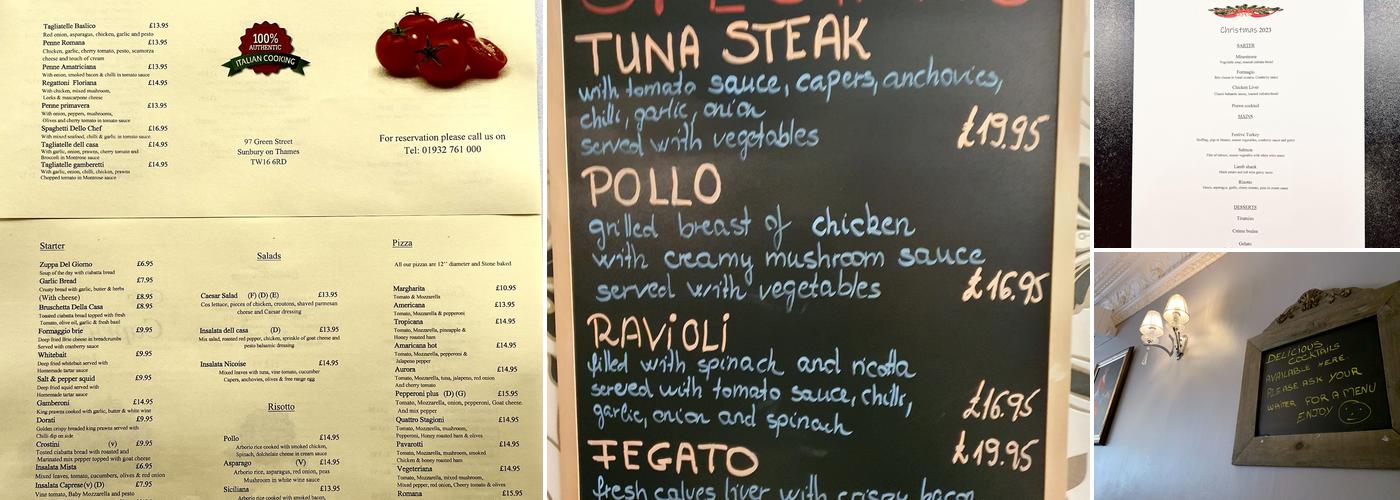 Tagliatelle Basilico £13.95
Red onion, asparagus, chicken, garlic and pesto
Penne Romana £13.95
Chicken, garlic, cherry tomato, pesto, scamorza
cheese and touch of cream
Penne Amatriciana £13.95
With onion, smoked bacon & chilli in tomato sauce
Regattoni Floriana £14.95
With chicken, mixed mushroom,
Leeks & mascarpone cheese
Penne primavera £13.95
With onion, peppers, mushrooms,
Olives and cherry tomato in tomato sauce
Spaghetti Dello Chef £16.95
With mixed seafood, chilli & garlic in tomato sauce
Tagliatelle dell casa £14.95
With garlic, onion, prawns, cherry tomato and
Broccoli in Montrose sauce
Tagliatelle gamberetti £14.95
With garlic, onion, chilli, chicken, prawns
Chopped tomato in Montrose sauce
100%
AUTHENTIC
ITALIAN COOKING
97 Green Street
Sunbury on Thames
TW16 6RD
For reservation please call us on
Tel: 01932 761 000
Starter
Zuppa Del Giorno £6.95
Soup of the day with ciabatta bread
Garlic Bread £7.95
Crusty bread with garlic, butter & herbs
(With cheese) £8.95
Bruschetta Della Casa £8.95
Toasted ciabatta bread topped with fresh
Tomato, olive oil, garlic & fresh basil
Formaggio brie £9.95
Deep fried Brie cheese in breadcrumbs
Served with cranberry sauce
Whitebait £9.95
Deep fried whitebait served with
Homemade tartar sauce
Salt & pepper squid £9.95
Deep fried squid served with
Homemade tartar sauce
Gamberoni £14.95
King prawns cooked with garlic, butter & white wine
Dorati £9.95
Golden crispy breaded king prawns served with
Chilli dip on side
Crostini (v) £9.95
Tosted ciabatta bread with roasted and
Marinated mix pepper topped with goat cheese
Insalata Mista £6.95
Mixed leaves, tomato, cucumbers, olives & red onion
Insalata Caprese (v) (D) £7.95
Vine tomato, Baby Mozzarella and pesto
Salads
Caesar Salad (F) (D) (E) £13.95
Cos lettuce, pieces of chicken, croutons, shaved parmesan
cheese and Caesar dressing
Insalata dell casa (D) £13.95
Mix salad, roasted red pepper, chicken, sprinkle of goat cheese and
pesto balsamic dressing
Insalata Nicoise £14.95
Mixed leaves with tuna, vine tomato, cucumber
Capers, anchovies, olives & free range egg
Risotto
Pollo £14.95
Arborio rice cooked with smoked chicken,
Spinach, dolcelate cheese in cream sauce
Asparago (V) £14.95
Arborio rice, asparagus, red onion, peas
Mushroom in white wine sauce
Siciliana £13.95
Arborio rice cooked with smoked bacon,
Pizza
All our pizzas are 12" diameter and Stone baked
Margharita £10.95
Tomato & Mozzarella
Americana £13.95
Tomato, Mozzarella & pepperoni
Tropicana £14.95
Tomato, Mozzarella, pineapple &
Honey roasted ham
Amaricana hot £14.95
Tomato, Mozzarella, pepperoni &
Jalapeno pepper
Aurora £14.95
Tomato, Mozzarella, tuna, jalapeno, red onion
And cherry tomato
Pepperoni plus (D) (G) £15.95
Tomato, Mozzarella, onion, pepperoni, Goat cheese.
And mix pepper
Quattro Stagioni £14.95
Tomato, Mozzarella, mushroom,
Pepperoni, Honey roasted ham & olives
Pavarotti £14.95
Tomato, Mozzarella, mushroom, smoked
Chicken & honey roasted ham
Vegeteriana £14.95
Tomato, Mozzarella, mixed mushroom,
Mixed pepper, red onion, Cherry tomato & olives
Romana £15.95
TUNA STEAK
with tomato sauce, capers, anchovies,
chilli, garlic, onion
served with vegetables £19.95
POLLO
grilled breast of chicken
with creamy mushroom sauce
served with vegetables £16.95
RAViOLi
filled with spinach and ricotta
served with tomato sauce, chilli,
garlic, onion and spinach £16.95
FEGATO £19.95
fresh calves liver with crispy bacon
Christmas 2023
SARTER
Minestrone
Vegetable soup, toasted ciabatta bread
Formagio
Chicken Liver
Prawn cocktail
MAINS
Festive Turkey
Salmon
Lamb shank
Risotto
DESSERTS
Tiramisu
Crème brulee
Gelato
DELICIOUS
COCKTAILS
AVAILABLE HERE.
PLEASE ASK YOUR
WAITER FOR A MENU
ENJOY